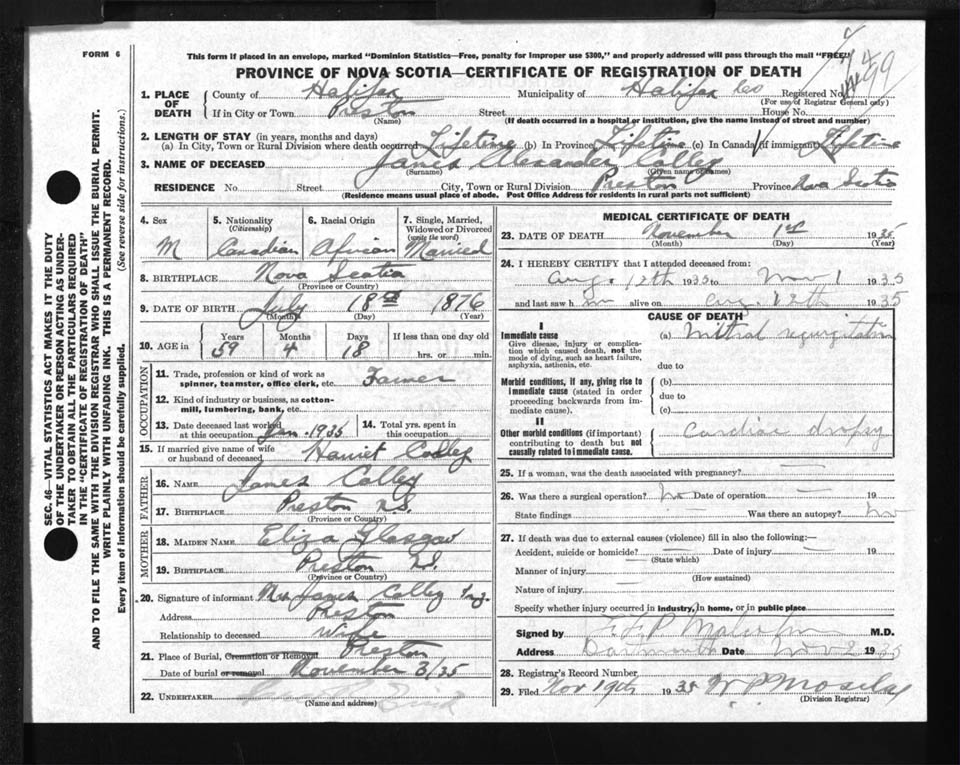 FORM 6
This form if placed in an envelope, marked "Dominion Statistics—Free, penalty for Improper use $300," and properly addressed will pass through the mail "FREE"
PROVINCE OF NOVA SCOTIA—CERTIFICATE OF REGISTRATION OF DEATH
1. PLACE OF DEATH County of Halifax Municipality of Halifax Co Registered No.
(For use of Registrar General only)
If in City or Town Preston Street House No.
(Name) (If death occurred in a hospital or institution, give the name instead of street and number)
2. LENGTH OF STAY (in years, months and days)
(a) In City, Town or Rural Division where death occurred Lifetime (b) In Province Lifetime (c) In Canada (if immigrant) Lifetime
3. NAME OF DECEASED James Alexander Colley
(Surname) (Given name or names)
RESIDENCE No. Street City, Town or Rural Division Preston Province Nova Scotia
(Residence means usual place of abode. Post Office Address for residents in rural parts not sufficient)
SEC. 46—VITAL STATISTICS ACT MAKES IT THE DUTY
OF THE UNDERTAKER OR PERSON ACTING AS UNDER-
TAKER TO OBTAIN ALL THE PARTICULARS REQUIRED
IN THE "CERTIFICATE OF REGISTRATION OF DEATH"
AND TO FILE THE SAME WITH THE DIVISION REGISTRAR WHO SHALL ISSUE THE BURIAL PERMIT.
WRITE PLAINLY WITH UNFADING INK. THIS IS A PERMANENT RECORD.
Every item of information should be carefully supplied. (See reverse side for instructions.)
4. Sex 5. Nationality 6. Racial Origin 7. Single, Married,
(Citizenship) Widowed or Divorced
(write the word)
M Canadian African Married
8. BIRTHPLACE Nova Scotia
(Province or Country)
9. DATE OF BIRTH July 18th 1876
(Month) (Day) (Year)
10. AGE in Years Months Days If less than one day old
59 4 18 hrs. or min.
OCCUPATION
11. Trade, profession or kind of work as
spinner, teamster, office clerk, etc. Farmer
12. Kind of industry or business, as cotton-
mill, lumbering, bank, etc.
13. Date deceased last worked
at this occupation Jan. 1935
14. Total yrs. spent in
this occupation
15. If married give name of wife
or husband of deceased Harriet Colley
FATHER
16. NAME James Colley
17. BIRTHPLACE Preston N.S.
(Province or Country)
MOTHER
18. MAIDEN NAME Eliza Glasgow
19. BIRTHPLACE Preston N.S.
(Province or Country)
20. Signature of informant Mrs James Colley
Address Preston
Relationship to deceased Wife
21. Place of Burial, Cremation or Removal Preston
Date of burial or removal November 3/35
22. UNDERTAKER
(Name and address)
MEDICAL CERTIFICATE OF DEATH
23. DATE OF DEATH November 1st 1935
(Month) (Day) (Year)
24. I HEREBY CERTIFY that I attended deceased from:
Aug. 12th 1935 to Nov 1 1935
and last saw him alive on Aug. 12th 1935
CAUSE OF DEATH
I
Immediate cause (a) Mitral regurgitation
Give disease, injury or compli-
cation which caused death, not the
mode of dying, such as heart failure,
asphyxia, asthenia, etc.
due to
Morbid conditions, if any, giving rise to
immediate cause (stated in order
proceeding backwards from im-
mediate cause).
(b)
due to
(c)
II
Other morbid conditions (if important)
contributing to death but not
causally related to immediate cause.
Cardiac dropsy
25. If a woman, was the death associated with pregnancy? —
26. Was there a surgical operation? No Date of operation — 19
State findings — Was there an autopsy? No
27. If death was due to external causes (violence) fill in also the following:—
Accident, suicide or homicide? — Date of injury — 19
(State which)
Manner of injury
(How sustained)
Nature of injury —
Specify whether injury occurred in industry, in home, or in public place
Signed by M.D.
Address Dartmouth Date Nov 2 1935
28. Registrar's Record Number
29. Filed Nov 19th 1935 W P Mosely
(Division Registrar)